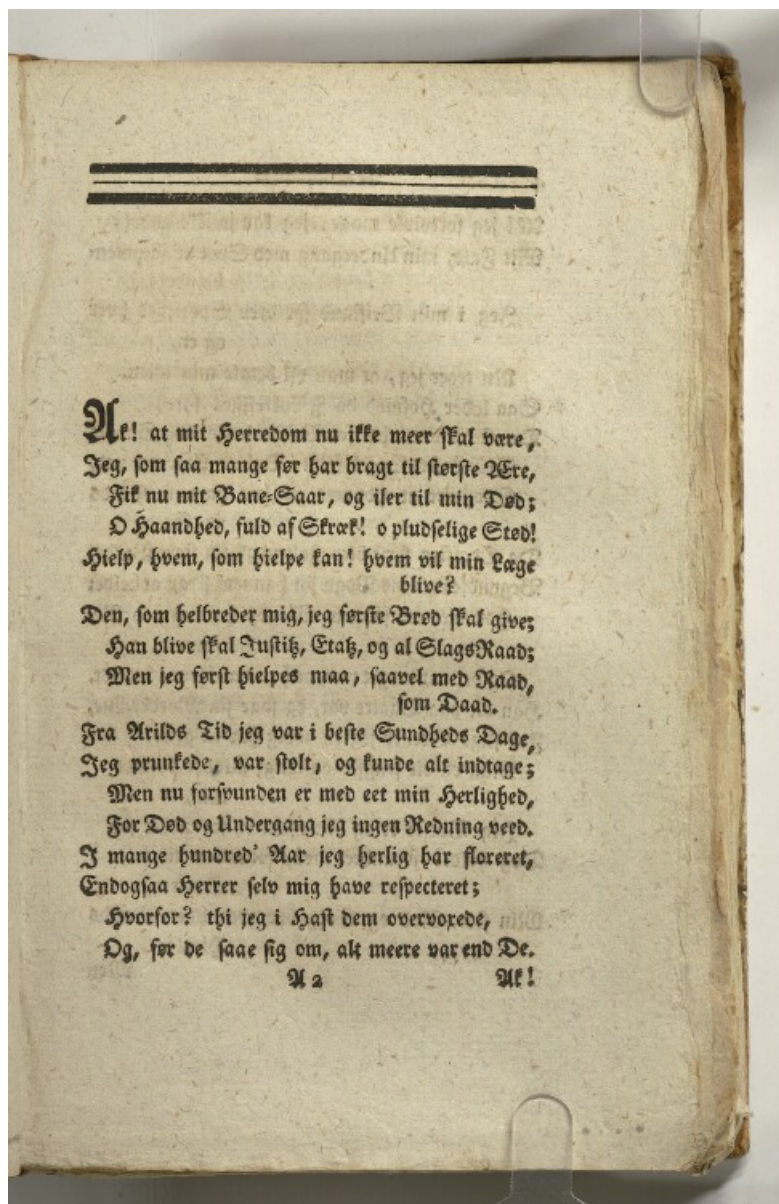 Ak! at mit Herredom nu ikke meer skal være,
Jeg, som saa mange før har bragt til største Ære,
Fik nu mit Bane-Saar, og iler til min Død;
O Haandhed, fuld af Skræk! o pludselige Stød!
Hielp, hvem, som hielpe kan! hvem vil min Læge
blive?
Den, som helbreder mig, jeg første Brød skal give;
Han blive skal Justitz, Etatz, og al SlagsRaad;
Men jeg først hielpes maa, saavel med Raad,
som Daad.
Fra Arilds Tid jeg var i beste Sundheds Dage,
Jeg prunkede, var stolt, og kunde alt indtage;
Men nu forsvunden er med eet min Herlighed,
For Død og Undergang jeg ingen Redning veed.
I mange hundred' Aar jeg herlig har floreret,
Endogsaa Herrer selv mig have respecteret;
Hvorfor? thi jeg i Hast dem overvoxede,
Og, før de saae sig om, alt meere var end De.
A 2 Ak!